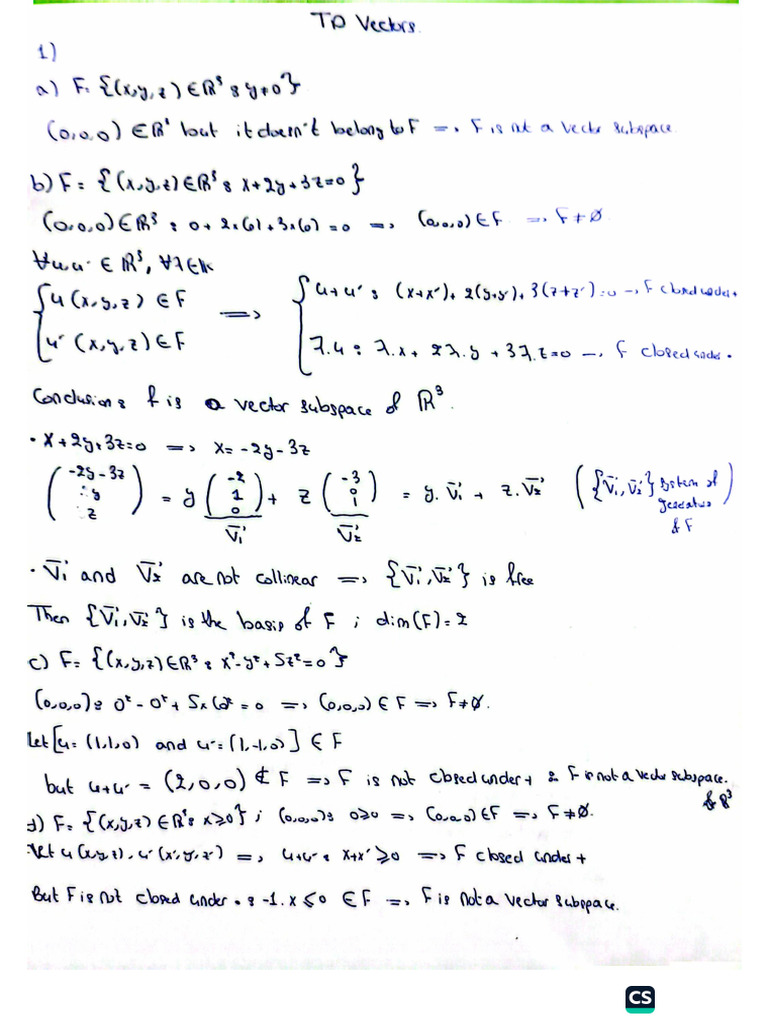 TD Vectors.
1)
a) F= {(x,y,z) ∈ ℝ³ : y≠0}
(0,0,0) ∈ ℝ³ but it doesn't belong to F => F is not a vector subspace.
b) F = {(x,y,z) ∈ ℝ³ : x+2y+3z=0}
(0,0,0) ∈ ℝ³ : 0 + 2×(0) + 3×(0) = 0 => (0,0,0) ∈ F => F ≠ ∅
∀u,u' ∈ ℝ³, ∀λ ∈ K
{ u (x,y,z) ∈ F => { u + u' : (x+x') + 2(y+y') + 3(z+z') = 0 → F closed under +
{ u' (x,y,z) ∈ F { λ.u : λ.x + 2λ.y + 3λ.z = 0 → F closed under .
Conclusion : F is a vector subspace of ℝ³.
• x+2y+3z=0 => x = -2y-3z
(-2y-3z, y, z) = y (-2, 1, 0) + z (-3, 0, 1) = y.V₁ + z.V₂ ({V₁,V₂} system of of F)
V₁ V₂
• V₁ and V₂ are not collinear => {V₁,V₂} is free
Then {V₁,V₂} is the basis of F ; dim(F)=2
c) F= {(x,y,z) ∈ ℝ³ : x²-y²+5z²=0}
(0,0,0) : 0² - 0² + 5×(0)² = 0 => (0,0,0) ∈ F => F≠∅.
let [u = (1,1,0) and u' = (1,-1,0)] ∈ F
but u+u' = (2,0,0) ∉ F => F is not closed under + & F is not a vector subspace.
of ℝ³
d) F= {(x,y,z) ∈ ℝ³ : x≥0} ; (0,0,0) : 0≥0 => (0,0,0) ∈ F => F≠∅.
let u(x,y,z), u'(x',y',z') => u+u' : x+x' ≥ 0 => F closed under +
But F is not closed under . : -1.x ≤ 0 ∈ F => F is not a vector subspace.
CS